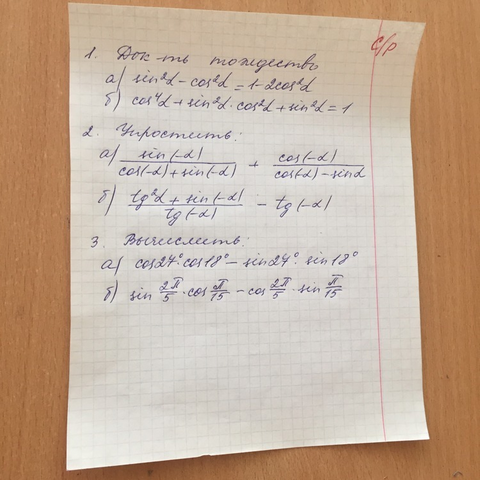 С/Р
1. Док-ть тождество
а) sin²α - cos²α = 1-2cos²α
б) cos⁴α + sin²α · cos²α + sin²α = 1
2. Упростить:
а) sin(-α)/(cos(-α) + sin(-α)) + cos(-α)/(cos(-α) - sinα)
б) (tg²α + sin(-α))/tg(-α) - tg(-α)
3. Вычислить:
а) cos27°·cos18° - sin27°·sin18°
б) sin 2π/5 · cos π/15 - cos 2π/5 · sin π/15